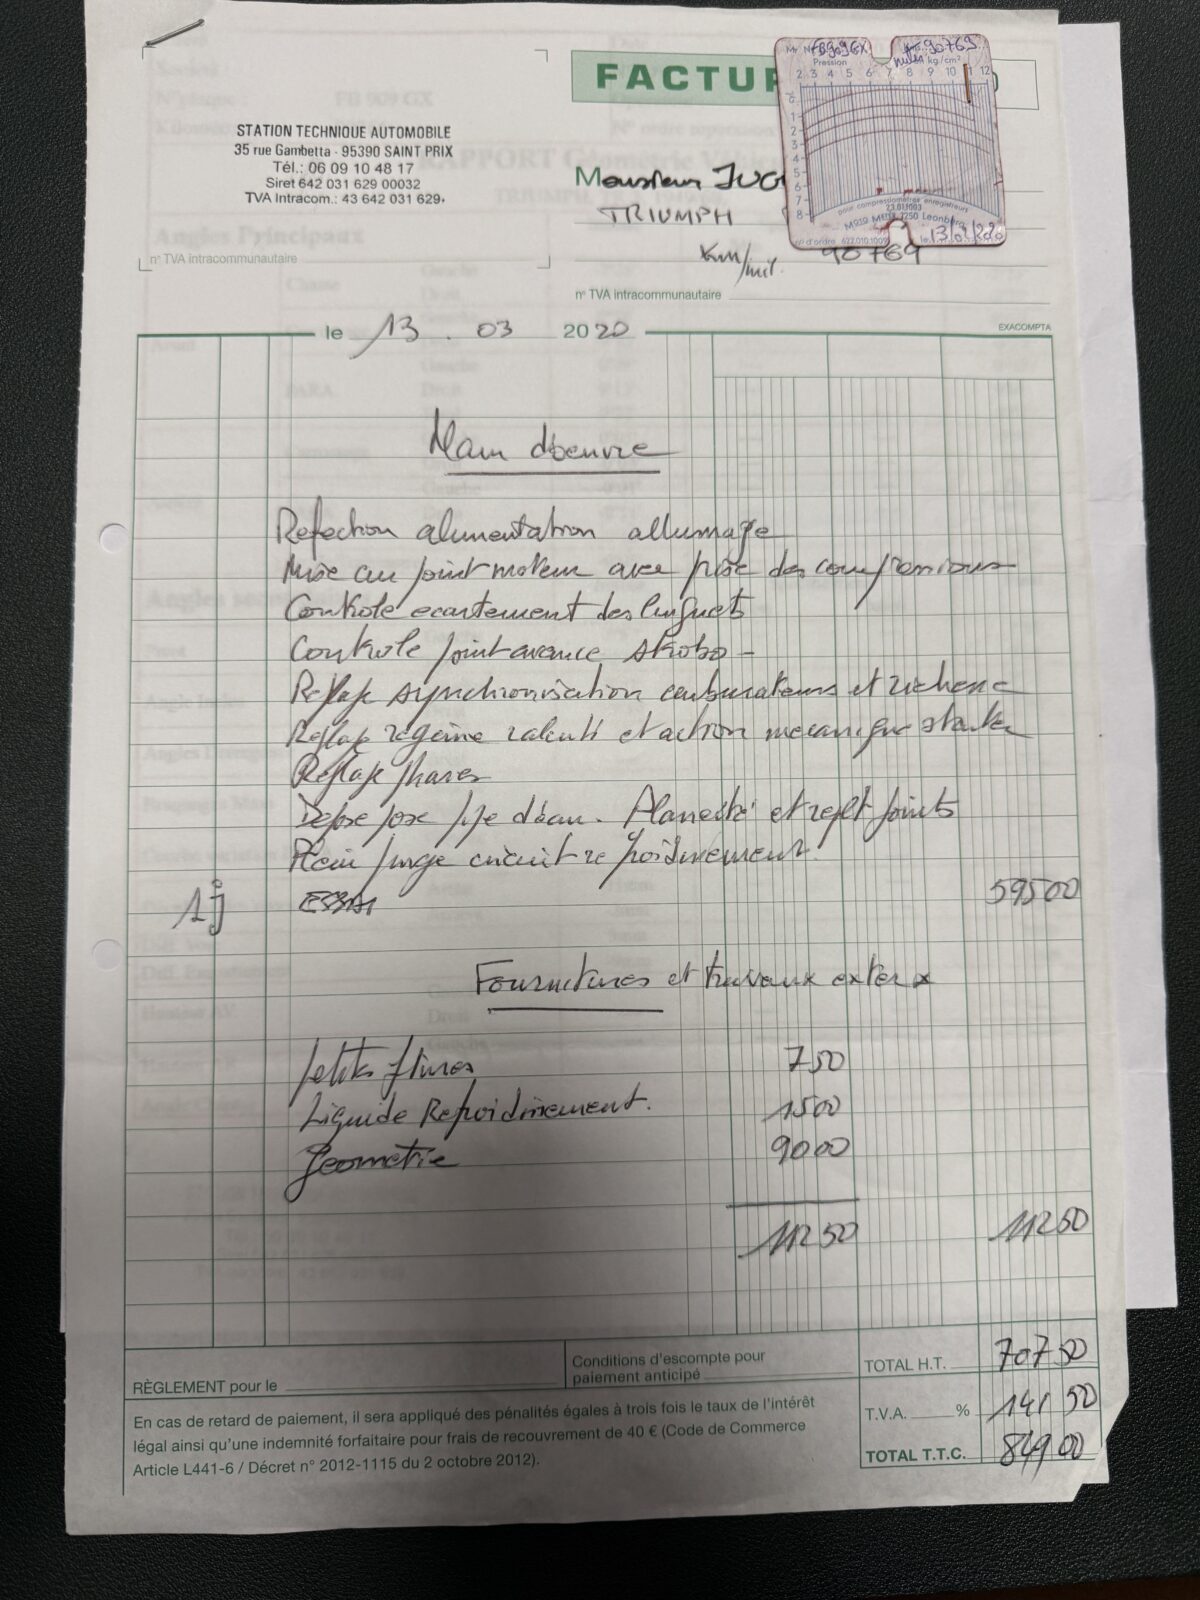 FACTUR
STATION TECHNIQUE AUTOMOBILE
35 rue Gambetta - 95390 SAINT PRIX
Tél.: 06 09 10 48 17
Siret 642 031 629 00032
TVA Intracom.: 43 642 031 629
n° TVA intracommunautaire
Monsieur
TRIUMPH
Km/mil. 90769
n° TVA intracommunautaire
Pression kg/cm²
2 3 4 5 6 7 8 9 10 11 12
1
2
3
4
5
6
7
8
pour compressiomètres enregistreurs
90769
le 13 . 03 2020
EXACOMPTA
Main d'oeuvre
Refection alimentation allumage
Mise au point moteur avec prise des compressions
Controle ecartement des linguets
Controle point avance strobo -
Reglage synchronisation carburateurs et richesse
Reglage regime ralenti et action mecanique starter
Reglage phares
Depose pose ppe d'eau. Planeité et replt joints
Plein purge circuit refroidissement.
1j ESSAI 595 00
Fournitures et travaux exterx
petites ftures 7 50
Liquide Refroidissement. 15 00
Geometrie 90 00
112 50 112 50
RÈGLEMENT pour le
Conditions d'escompte pour
paiement anticipé
TOTAL H.T. 707 50
T.V.A. % 141 50
TOTAL T.T.C. 849 00
En cas de retard de paiement, il sera appliqué des pénalités égales à trois fois le taux de l'intérêt
légal ainsi qu'une indemnité forfaitaire pour frais de recouvrement de 40 € (Code de Commerce
Article L441-6 / Décret n° 2012-1115 du 2 octobre 2012).